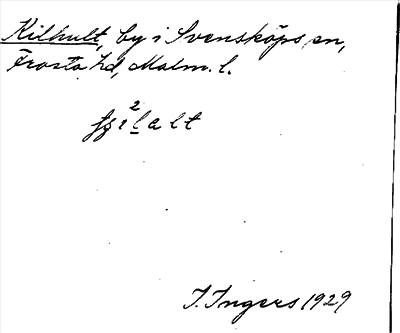 Kilhult, by i Svensköps sn,
Frosta hd, Malm. l.
I. Ingers 1929